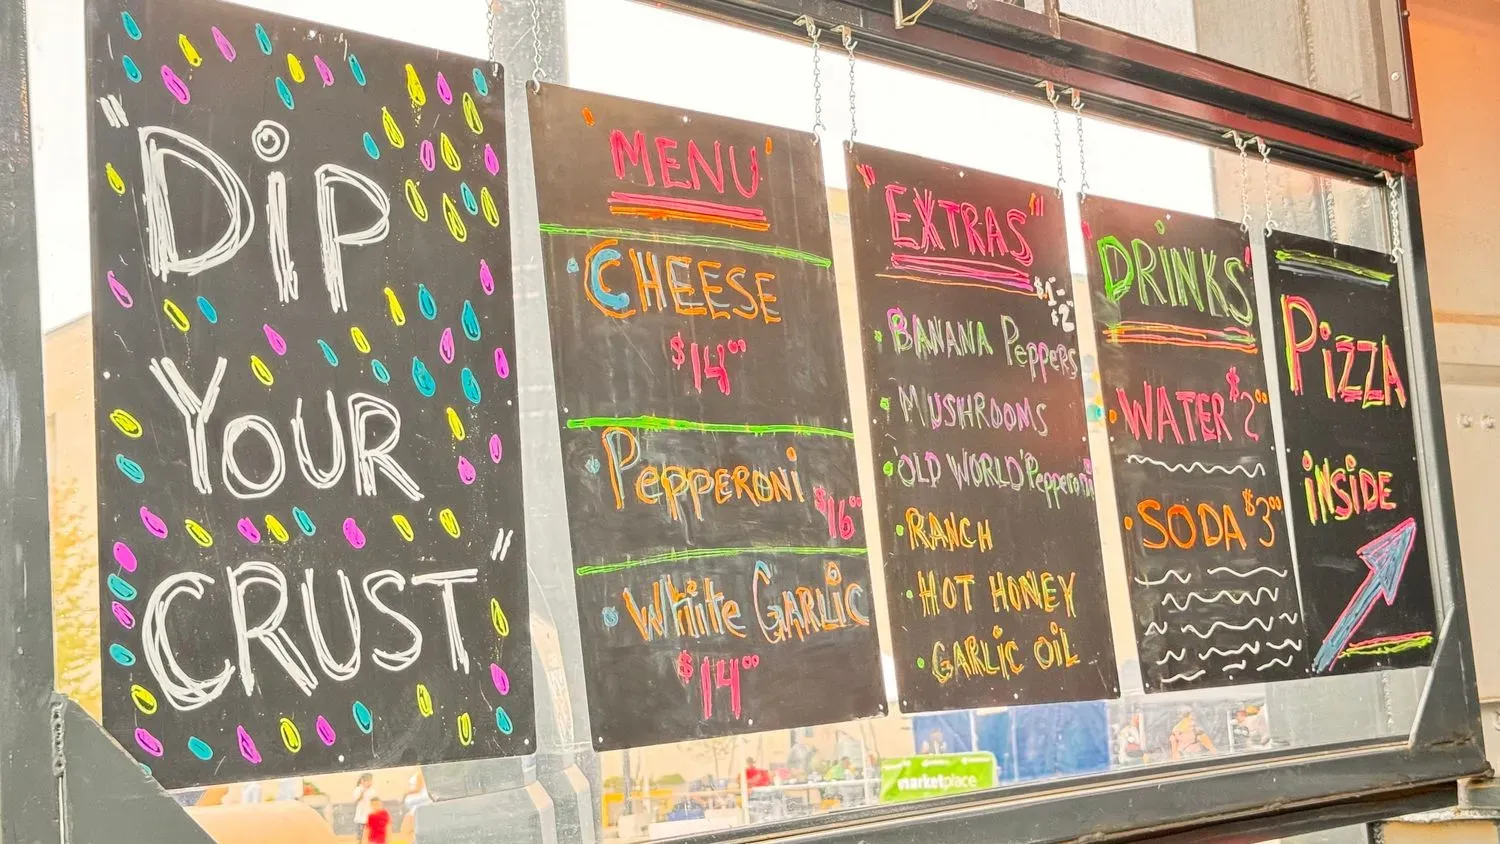 "DiP
YOUR
CRUST"
MENU
CHEESE
$14⁰⁰
PEPPERONi
$16⁰⁰
White GARLiC
$14⁰⁰
"EXTRAS"
$1-
$2
BANANA Peppers
MUSHROOMS
'OLD WORLD' Pepperoni
RANCH
HOT HONEY
GARLiC OiL
DRiNKS
WATER $2⁰⁰
SODA $3⁰⁰
PiZZA
iNSiDE
marketplace